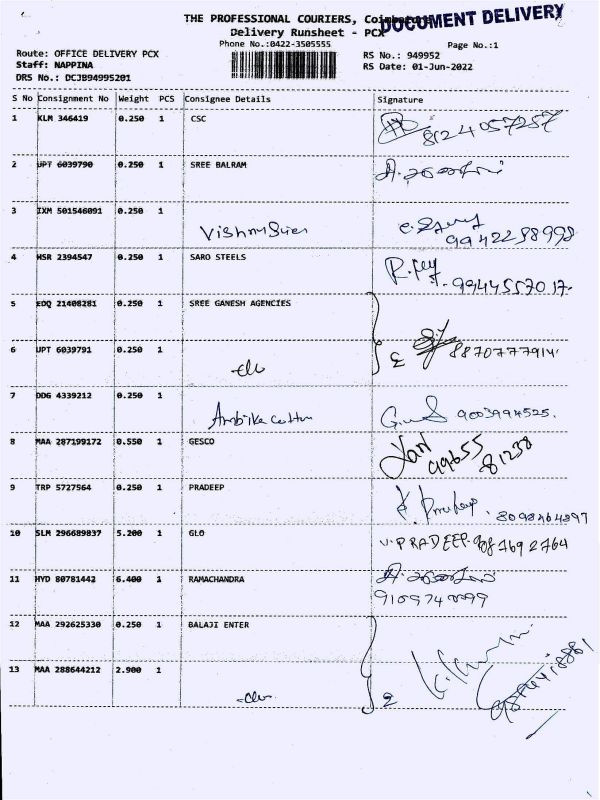 THE PROFESSIONAL COURIERS, Coimbatore
DOCUMENT DELIVERY
Delivery Runsheet - PCX
Phone No.:0422-3505555
Page No.:1
Route: OFFICE DELIVERY PCX
RS No.: 949952
Staff: NAPPINA
RS Date: 01-Jun-2022
DRS No.: DCJB94995201
S No Consignment No Weight PCS Consignee Details Signature
1 KLM 346419 0.250 1 CSC 8124057257
2 UPT 6039790 0.250 1 SREE BALRAM
3 IXM 501546091 0.250 1 9942258998
4 HSR 2394547 0.250 1 SARO STEELS 9944557017
5 EDQ 21408281 0.250 1 SREE GANESH AGENCIES
6 UPT 6039791 0.250 1 8870777914
7 DDG 4339212 0.250 1 Ambika cotton 9003994525.
8 MAA 287199172 0.550 1 GESCO 99655 81238
9 TRP 5727564 0.250 1 PRADEEP
10 SLM 296689837 5.200 1 GLO V.PRADEEP
11 HYD 80781442 6.400 1 RAMACHANDRA
12 MAA 292625330 0.250 1 BALAJI ENTER
13 MAA 288644212 2.900 1